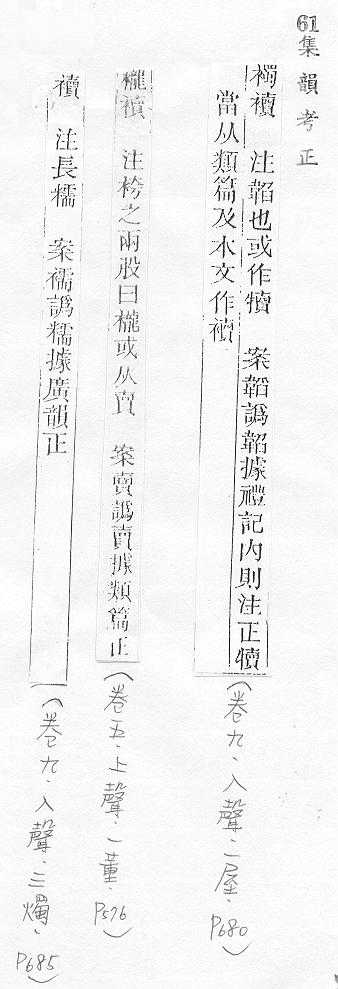 61集韻考正
襡襩　注韜也或作犢　案韜譌韜據禮記內則注正犢
當从類篇及本文作襩
（卷九‧入聲‧一屋‧P680）
襱襩　注袴之兩股曰襱或从賣　案賣譌賣據類篇正
（卷五‧上聲‧一董‧P576）
襩　注長襦　案襦譌糯據廣韻正
（卷九‧入聲‧三燭‧P685）